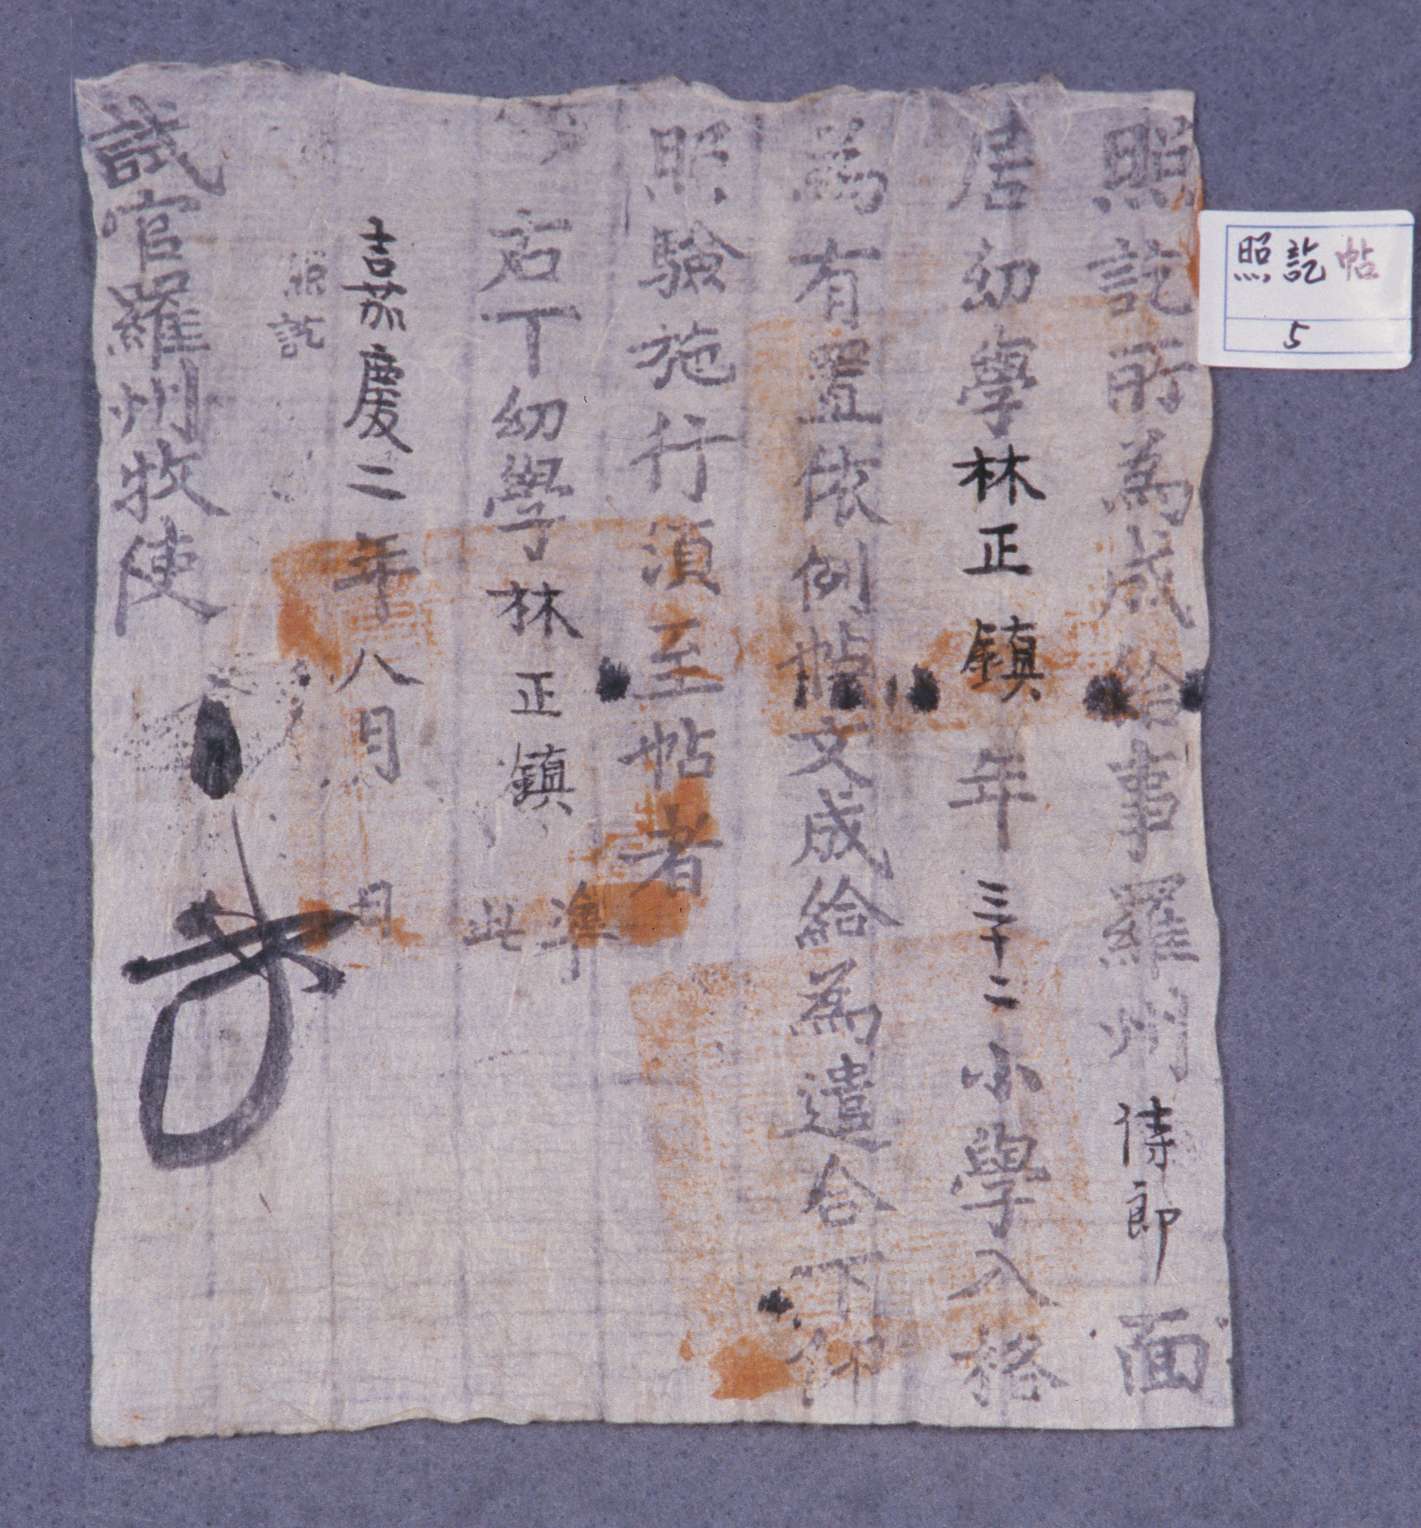 照訖所爲成給事羅州侍郎面
居幼學林正鎮年三十二小學入格
爲有置依例帖文成給爲遣合下仰
照驗施行須至帖者
右下幼學林正鎮
準此
嘉慶二年八月日
照訖
試官羅州牧使
照訖帖
5